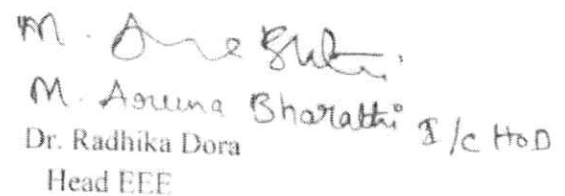 M. Aruna Bharathi I/c HoD
Dr. Radhika Dora
Head EEE